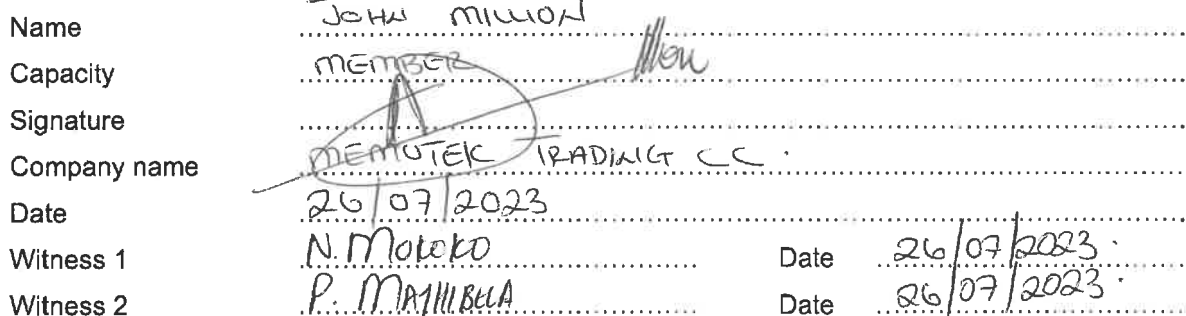 Name JOHN MILLION
Capacity MEMBER
Signature
Company name MEMUTEK TRADING CC.
Date 26/07/2023
Witness 1 N. MOLOKO Date 26/07/2023.
Witness 2 P. Date 26/07/2023.